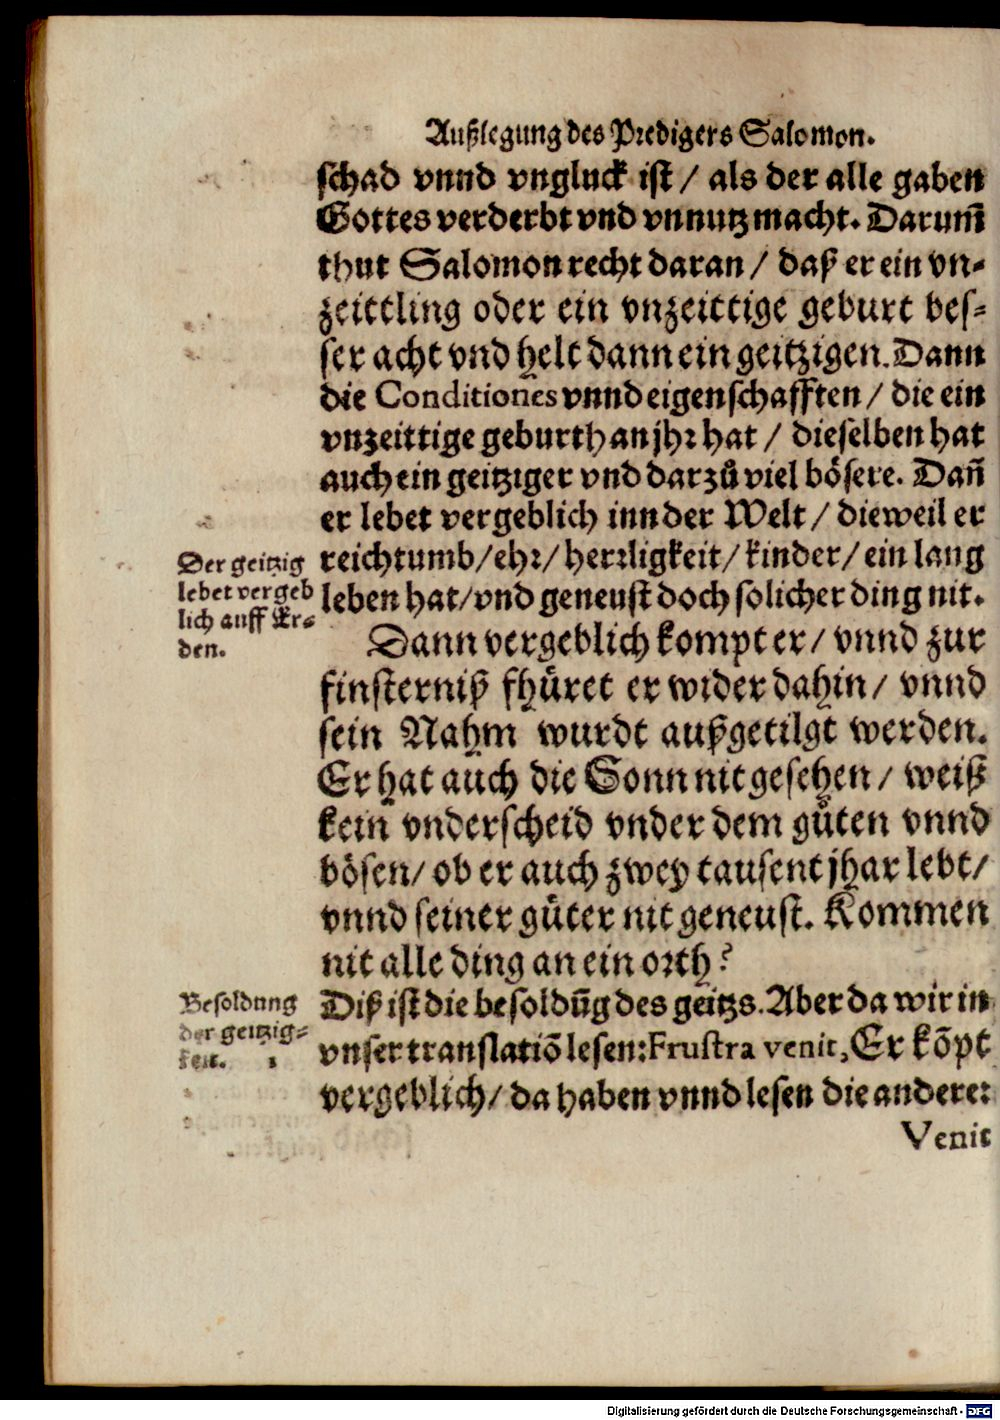 Außlegung des Predigers Salomon.
schad vnnd vngluck ist / als der alle gaben
Gottes verderbt vnd vnnutz macht. Darum̃
thut Salomon recht daran / daß er ein vn-
zeittling oder ein vnzeittige geburt bes-
ser acht vnd helt dann ein geitzigen. Dann
die Conditiones vnnd eigenschafften / die ein
vnzeittige geburth an jhr hat / dieselben hat
auch ein geitziger vnd darzů viel bösere. Dañ
er lebet vergeblich inn der Welt / dieweil er
reichtumb / ehr / herrligkeit / kinder / ein lang
leben hat / vnd geneust doch solicher ding nit.
Der geitzig
lebet vergeb
lich auff Er-
den.
Dann vergeblich kompt er / vnnd zur
finsterniß fhüret er wider dahin / vnnd
sein Nahm wurdt außgetilgt werden.
Er hat auch die Sonn nit gesehen / weiß
kein vnderscheid vnder dem gůten vnnd
bösen / ob er auch zwey tausent jhar lebt /
vnnd seiner güter nit geneust. Kommen
nit alle ding an ein orth?
Diß ist die besoldũg des geitzs. Aber da wir in
vnser translatiõ lesen: Frustra venit, Er kõpt
vergeblich / da haben vnnd lesen die andere:
Besoldung
der geitzig-
keit. 1
Venit
Digitalisierung gefördert durch die Deutsche Forschungsgemeinschaft - DFG